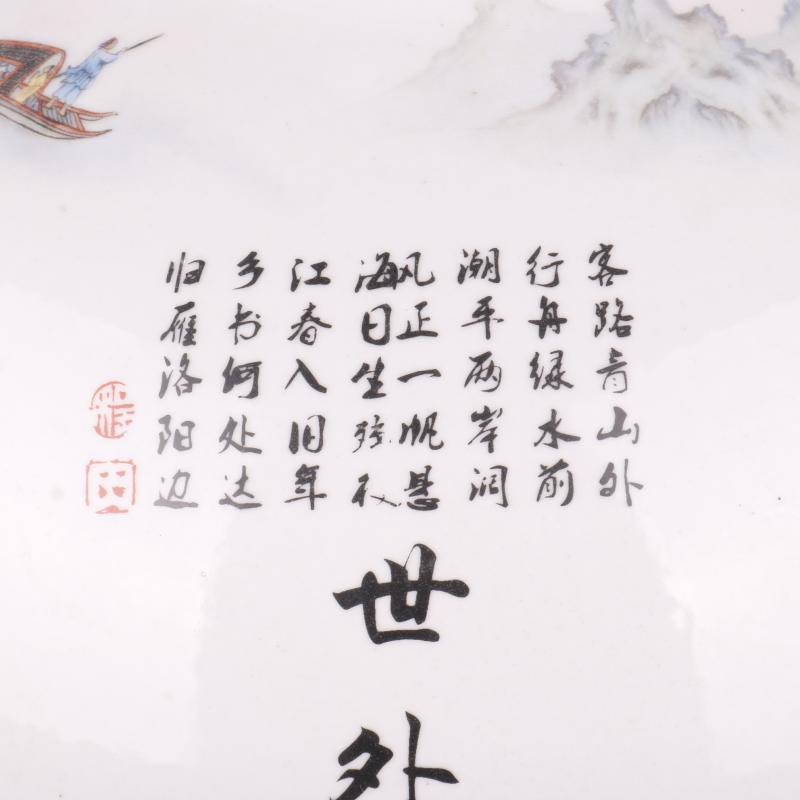 客路青山外
行舟绿水前
潮平两岸阔
风正一帆悬
海日生
江春入旧年
乡书何处达
归雁洛阳边
世外